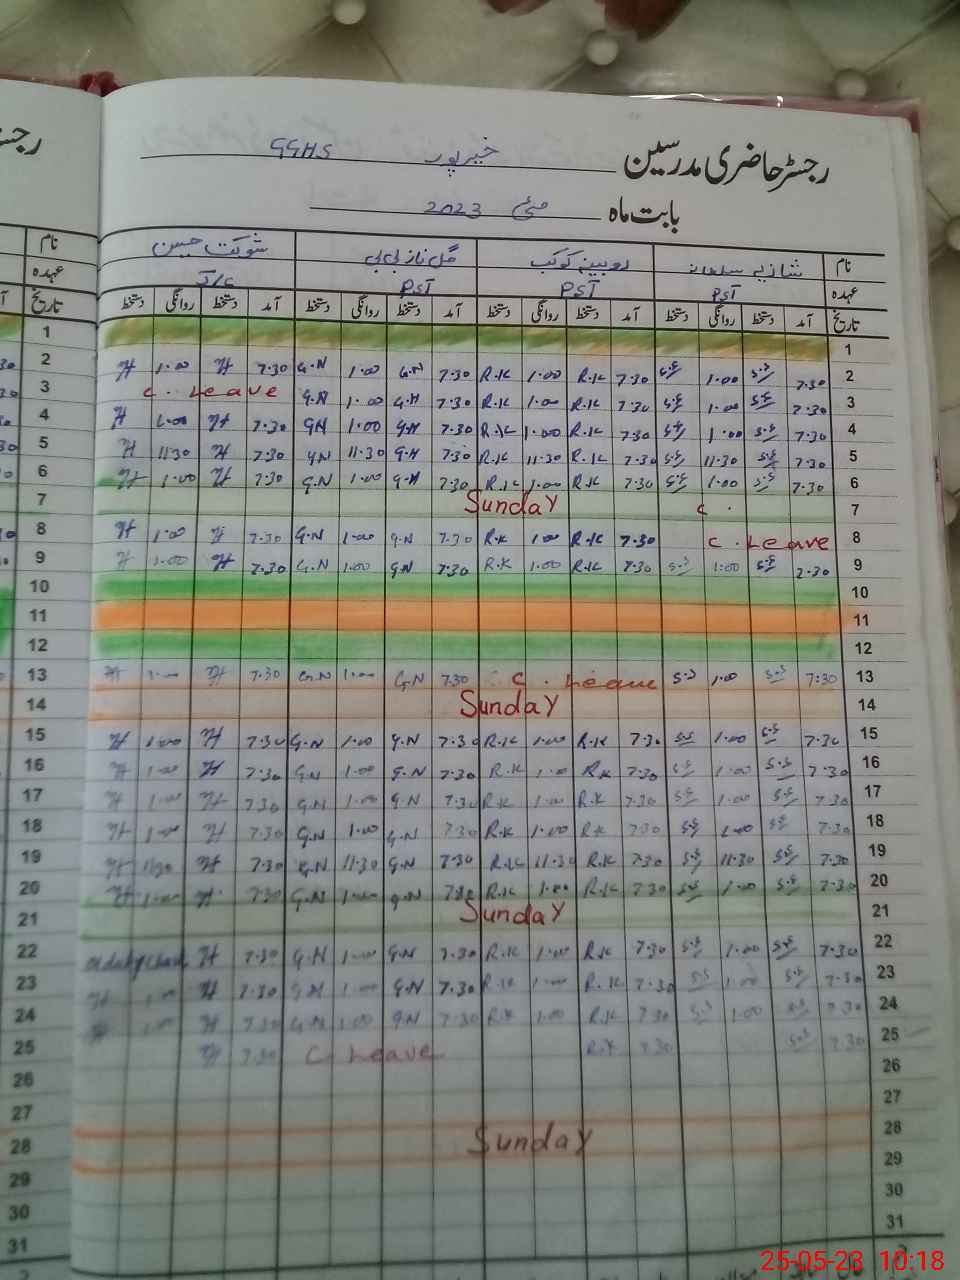 رجسٹر حاضری مدرسین خیرپور GGHS
بابت ماہ مئی 2023
نام شازیہ سلطانہ روبینہ کوکب گل ناز بی بی شوکت حسین نام
عہدہ PST PST PST J/C عہدہ
تاریخ آمد دستخط روانگی دستخط آمد دستخط روانگی دستخط آمد دستخط روانگی دستخط آمد دستخط روانگی دستخط تاریخ
1 1
2 H 1.00 H 7.30 G.N 1.00 G.N 7.30 R.K 1.00 R.K 7.30 S.S 1.00 S.S 7.30 2
3 C. Leave G.N 1.00 G.N 7.30 R.K 1.00 R.K 7.30 S.S 1.00 S.S 7.30 3
4 H 1.00 H 7.30 G.N 1.00 G.N 7.30 R.K 1.00 R.K 7.30 S.S 1.00 S.S 7.30 4
5 H 11.30 H 7.30 G.N 11.30 G.N 7.30 R.K 11.30 R.K 7.30 S.S 11.30 S.S 7.30 5
6 H 1.00 H 7.30 G.N 1.00 G.N 7.30 R.K 1.00 R.K 7.30 S.S 1.00 S.S 7.30 6
7 Sunday C. 7
8 H 1.00 H 7.30 G.N 1.00 G.N 7.30 R.K 1.00 R.K 7.30 C. Leave 8
9 H 1.00 H 7.30 G.N 1.00 G.N 7.30 R.K 1.00 R.K 7.30 S.S 1.00 S.S 7.30 9
10 10
11 11
12 12
13 H 1.00 H 7.30 G.N 1.00 G.N 7.30 C. Leave S.S 1.00 S.S 7:30 13
14 Sunday 14
15 H 1.00 H 7.30 G.N 1.00 G.N 7.30 R.K 1.00 R.K 7.30 S.S 1.00 S.S 7.30 15
16 H 1.00 H 7.30 G.N 1.00 G.N 7.30 R.K 1.00 R.K 7.30 S.S 1.00 S.S 7.30 16
17 H 1.00 H 7.30 G.N 1.00 G.N 7.30 R.K 1.00 R.K 7.30 S.S 1.00 S.S 7.30 17
18 H 1.00 H 7.30 G.N 1.00 G.N 7.30 R.K 1.00 R.K 7.30 S.S 1.00 S.S 7.30 18
19 H 11.30 H 7.30 G.N 11.30 G.N 7.30 R.K 11.30 R.K 7.30 S.S 11.30 S.S 7.30 19
20 H 1.00 H 7.30 G.N 1.00 G.N 7.30 R.K 1.00 R.K 7.30 S.S 1.00 S.S 7.30 20
21 Sunday 21
22 H 7.30 G.N 1.00 G.N 7.30 R.K 1.00 R.K 7.30 S.S 1.00 S.S 7.30 22
23 H 1.00 H 7.30 G.N 1.00 G.N 7.30 R.K 1.00 R.K 7.30 S.S 1.00 S.S 7.30 23
24 H 1.00 H 7.30 G.N 1.00 G.N 7.30 R.K 1.00 R.K 7.30 S.S 1.00 S.S 7.30 24
25 H 7.30 C. Leave R.K 7.30 S.S 7.30 25
26 26
27 27
28 Sunday 28
29 29
30 30
31 31
25-05-23 10:18